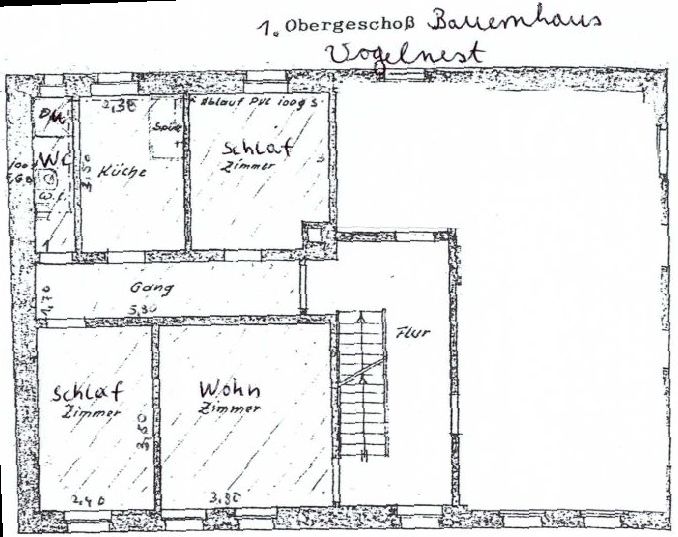 1. Obergeschoß Bauernhaus
Vogelnest
2,30
Ablauf PVC 100g S.
DU
Spüle
WC
3,50
Küche
Schlaf
Zimmer
1,70
Gang
5,80
Flur
Schlaf
Zimmer
Wohn
Zimmer
3,50
2,40
3,80